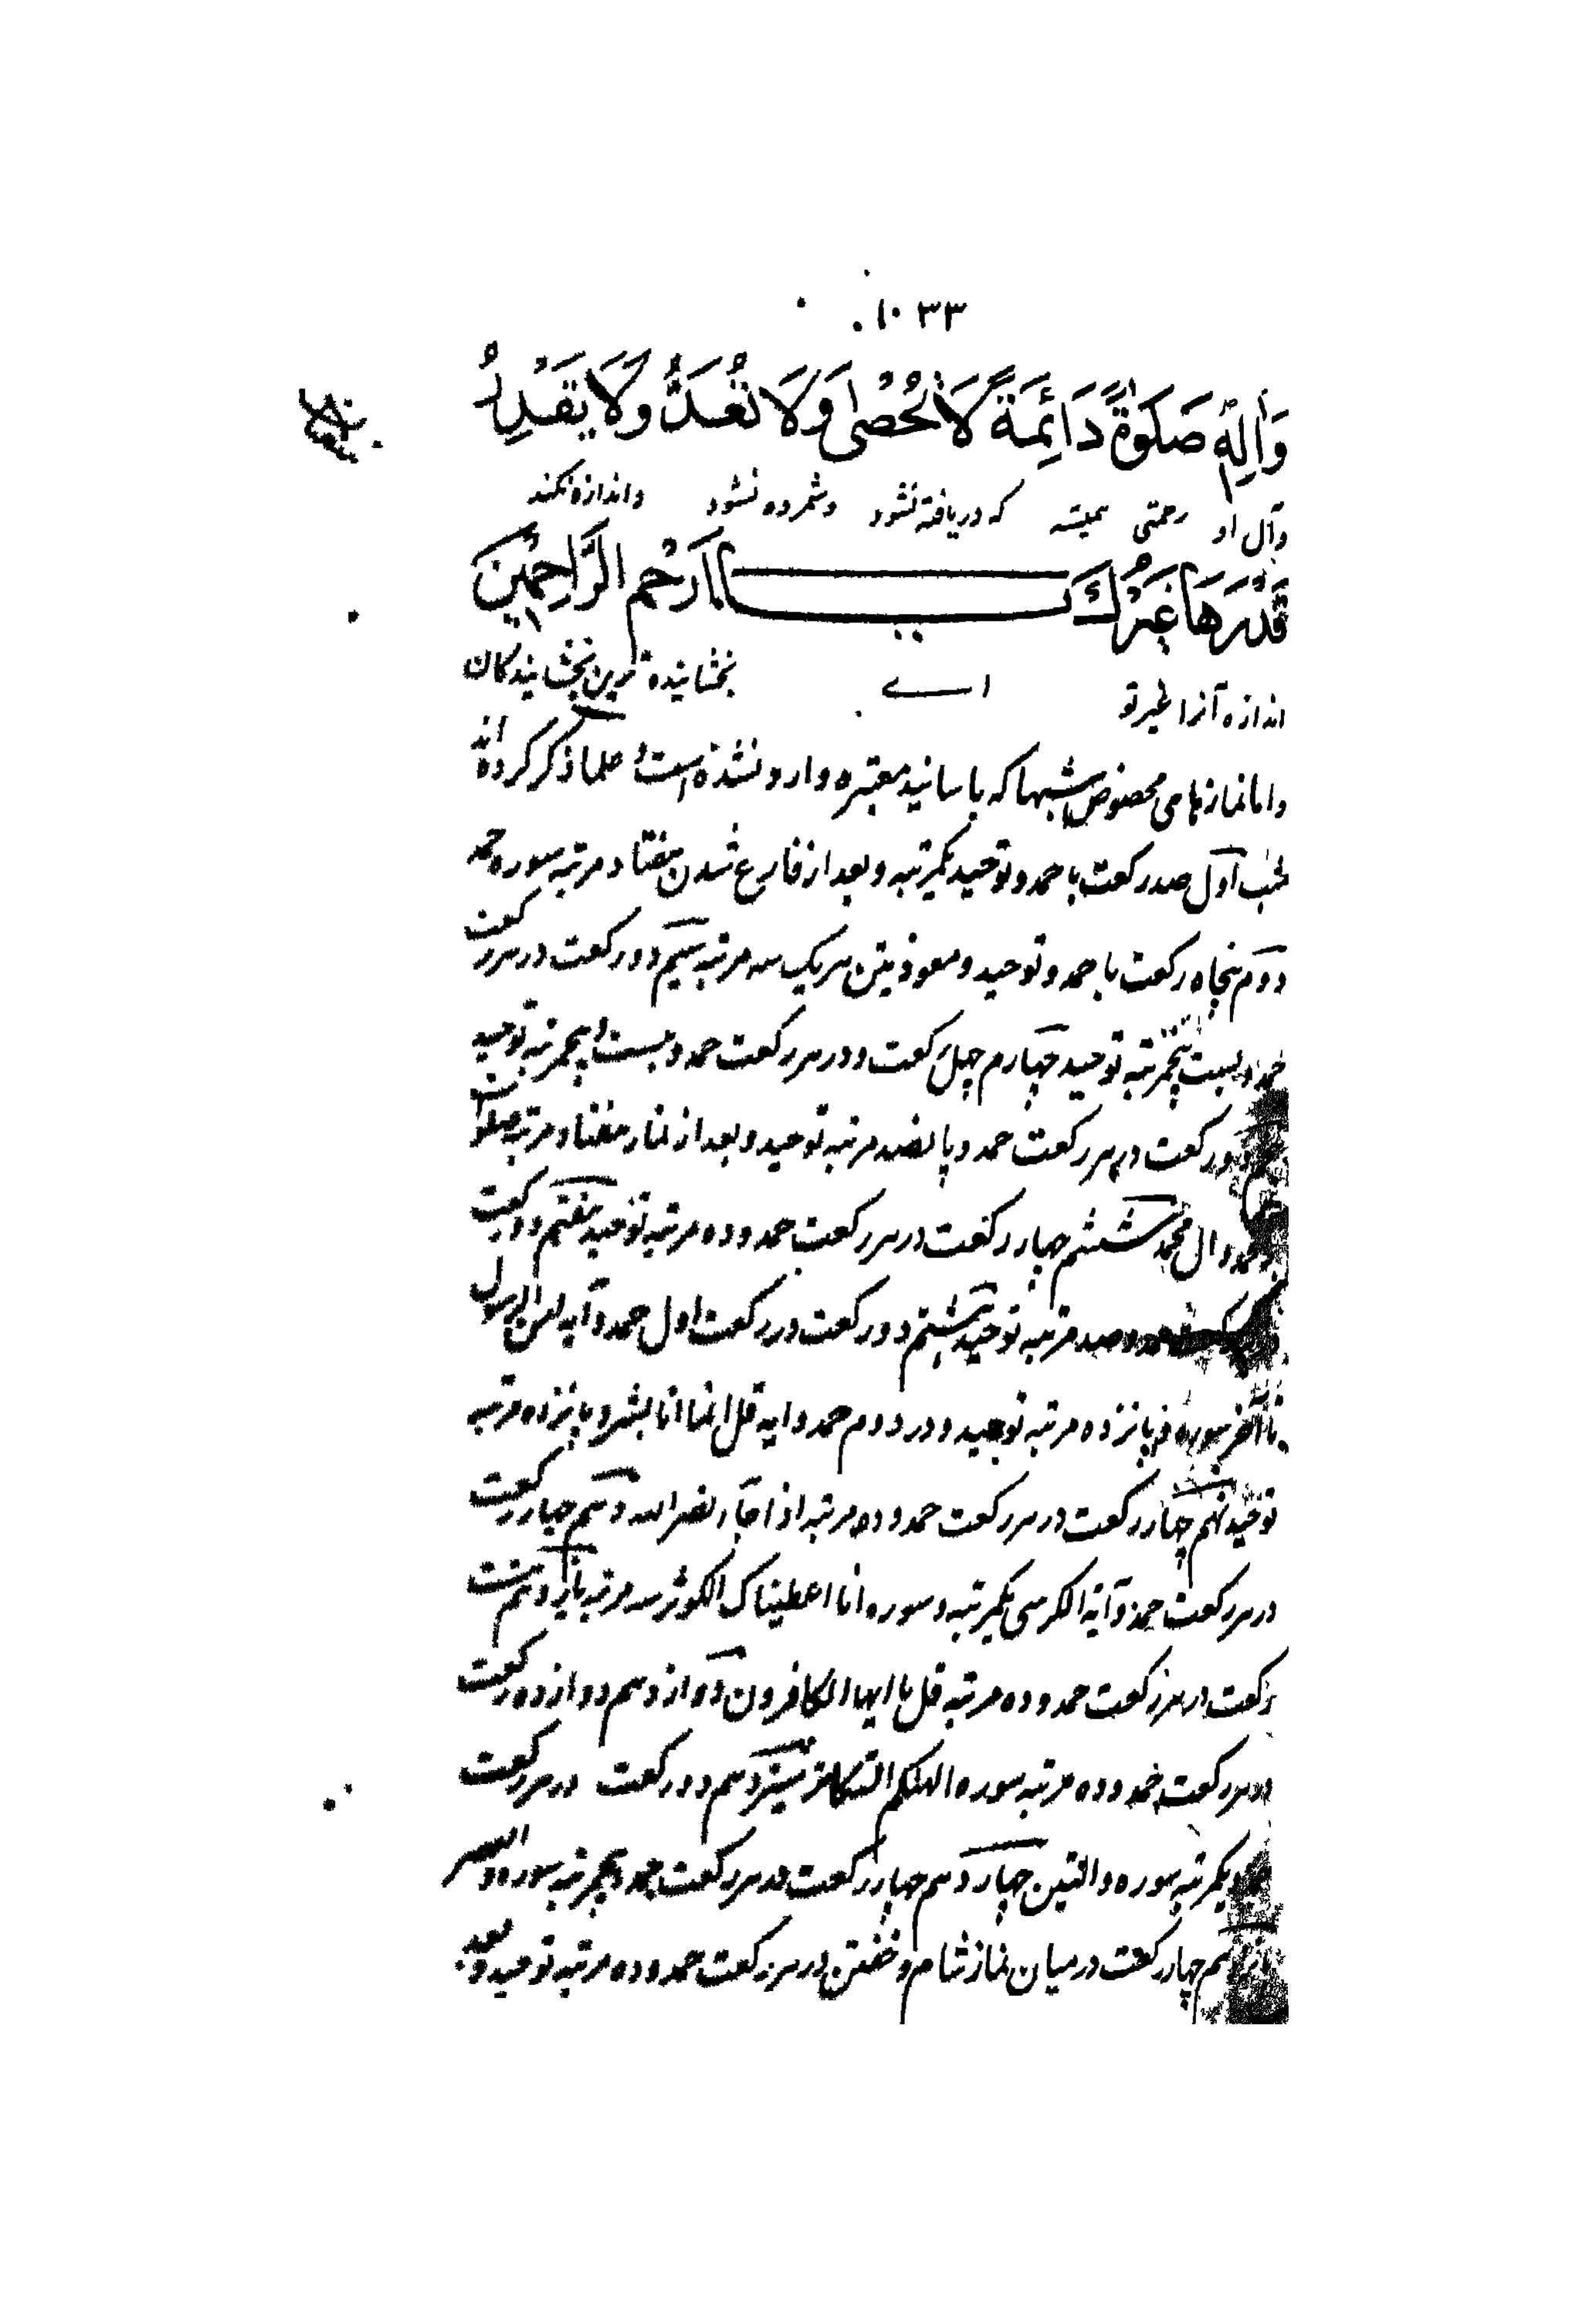 ۱۰۳۳
وَاٰلِهٖ صَلٰوةً دَائِمَةً لَا تُحْصٰى وَلَا تُعَدُّ وَلَا يَقْدِرُ
وآل او رحمتی همیشه که دریافته نشود وشمرده نشود واندازه نکند
قَدْرَهَا غَيْرُكَ يا اَرْحَمَ الرَّاحِمِيْنَ
اندازه آنرا غیر تو ای بخشاینده ترین بخشایندکان
واما نمازهای مخصوص شبها که باسانید معتبره وارد نشده است علما ذکر کرده اند
شب اول صد رکعت با حمد وتوحید یکمرتبه وبعد از فارغ شدن هفتاد مرتبه سوره حمد
دوم پنجاه رکعت با حمد وتوحید ومعوذتین هریک سه مرتبه سیم دو رکعت در هر رکعت
حمد وبیست پنجمرتبه توحید چهارم چهل رکعت ودر هر رکعت حمد وبیست پنجمرتبه توحید
دو رکعت در هر رکعت حمد وپانصد مرتبه توحید وبعد از نماز هفتاد مرتبه صلوات
وال محمد ششم چهار رکعت در هر رکعت حمد وده مرتبه توحید هفتم دو رکعت
وصد مرتبه توحید هشتم دو رکعت در رکعت اول حمد وآیه امن الرسول
تا آخر سوره و پانزده مرتبه توحید ودر دوم حمد وایه قل انما انا بشر وپانزده مرتبه
توحید نهم چهار رکعت در هر رکعت حمد وده مرتبه اذا جآء نصر الله دهم چهار رکعت
در هر رکعت حمد وآیة الکرسی یکمرتبه وسوره انا اعطیناک الکوثر سه مرتبه یازدهم هشت
رکعت در هر رکعت حمد وده مرتبه قل یا ایها الکافرون دوازدهم دوازده رکعت
در هر رکعت حمد وده مرتبه سوره الهکم التکاثر سیزدهم دو رکعت در هر رکعت
یکمرتبه سوره والتین چهاردهم چهار رکعت در هر رکعت حمد وپنجمرتبه سوره والعصر
پانزدهم چهار رکعت در میان نماز شام وخفتن در هر رکعت حمد وده مرتبه توحید وبعد